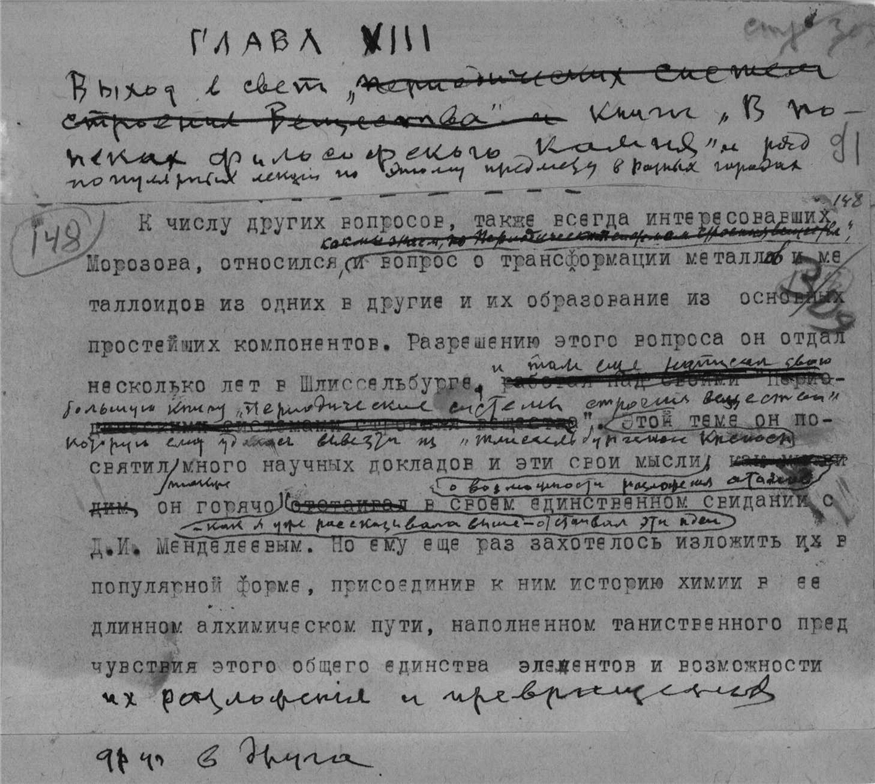 ГЛАВА XIII
Выход в свет „периодических систем
строения вещества" и книги „В по-
исках философского камня" и ряд 91
популярных лекций по этому предмету в разных городах
148
148
К числу других вопросов, также всегда интересовавших
Морозова, относился, и вопрос о трансформации металлов и ме
таллоидов из одних в другие и их образование из основных
простейших компонентов. Разрешению этого вопроса он отдал
и там еще написал свою
несколько лет в Шлиссельбурге, работая над своими "Перио-
большую книгу „Периодические системы строения вещества"
дическими системами строения вещества". Этой теме он по-
которую ему удалось вывезти из Шлиссельбургской крепости
святил много научных докладов и эти свои мысли, как мы ви
о возможности разложения атомов
дим, он горячо отстаивал в своем единственном свидании с
–как я уже рассказывала выше–отстаивал эти идеи
Д.И. Менделеевым. Но ему еще раз захотелось изложить их в
популярной форме, присоединив к ним историю химии в ее
длинном алхимическом пути, наполненном таниственного пред
чувствия этого общего единства элементов и возможности
их разложения и превращения
друг в друга